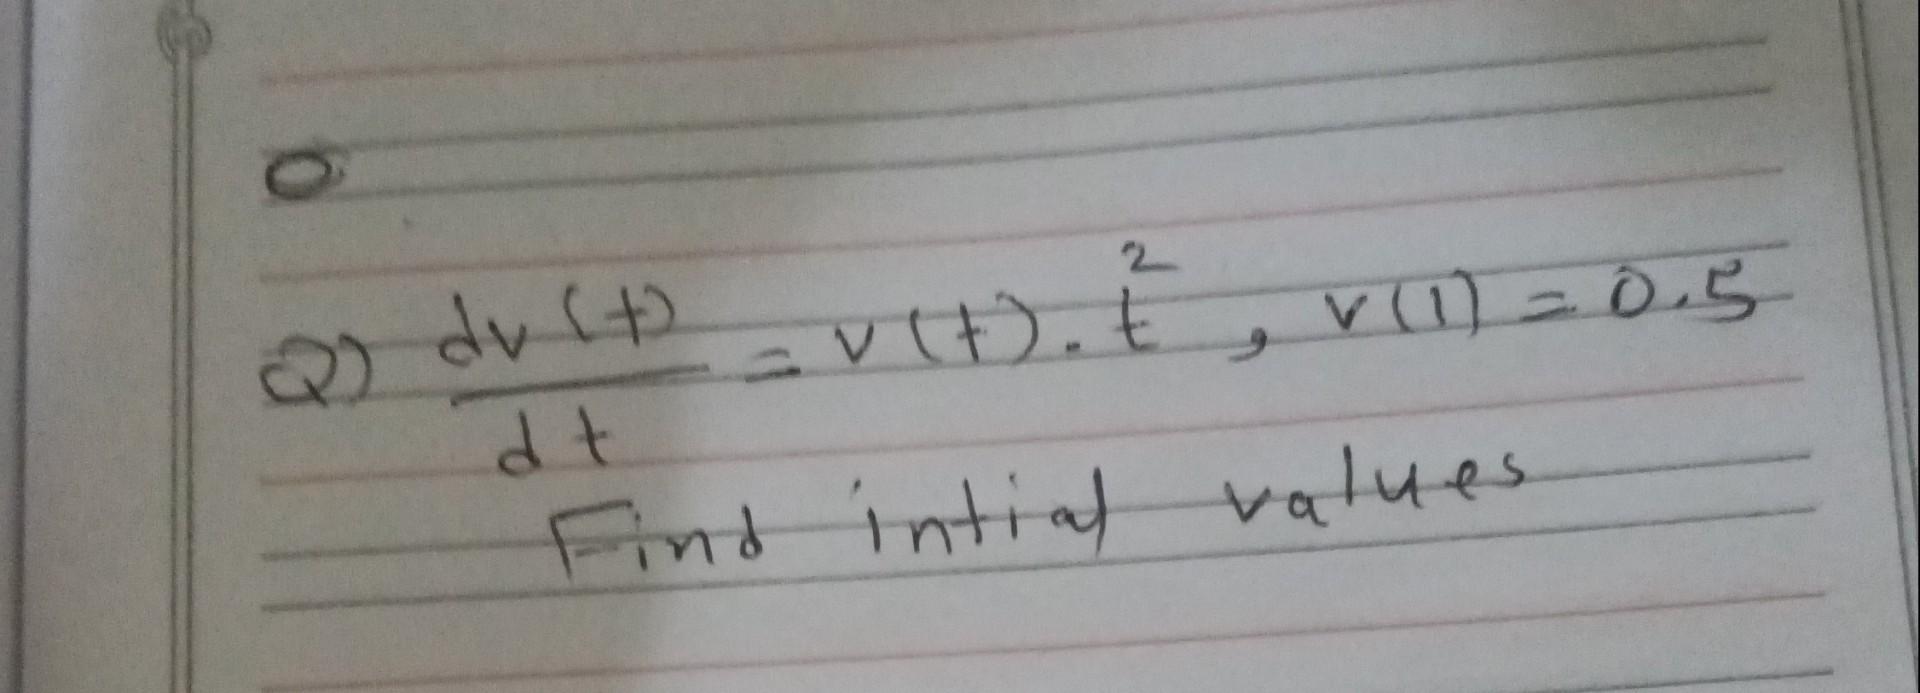 0
Q) dv(t)/dt = v(t).t², v(1) = 0.5
Find intial values